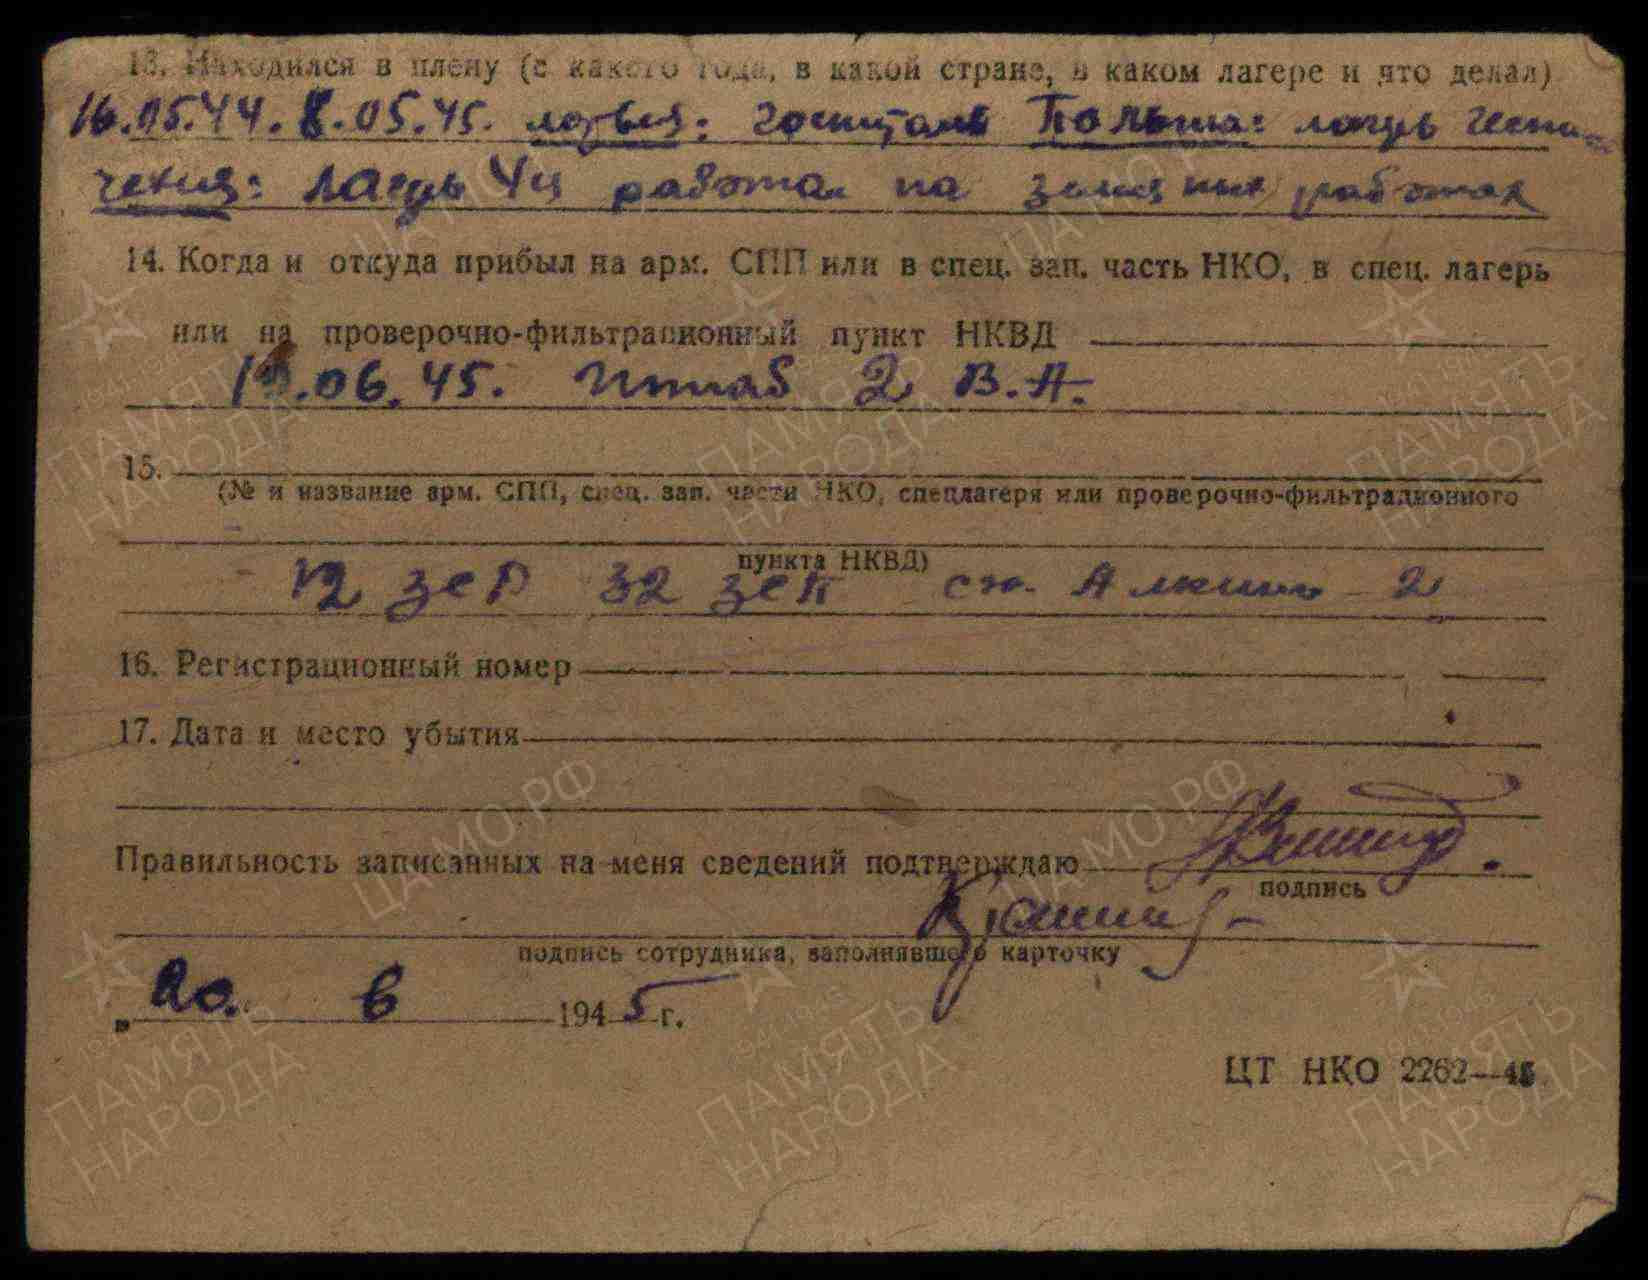 13. Находился в плену (с какого года, в какой стране, в каком лагере и что делал)
16.05.44. 8.05.45. латвия: госпиталь Польша: лагерь
чехия: лагерь 4ц работал на земляных работах
14. Когда и откуда прибыл на арм. СПП или в спец. зап. часть НКО, в спец. лагерь
или на проверочно-фильтрационный пункт НКВД
.06.45. Штаб 2 В.А.
15.
(№ и название арм. СПП, спец. зап. части НКО, спецлагеря или проверочно-фильтрационного
пункта НКВД)
12 зсп 32 зсд ст. Алкино-2
16. Регистрационный номер
17. Дата и место убытия
Правильность записанных на меня сведений подтверждаю
подпись
подпись сотрудника, заполнявшего карточку
„20. 6 1945 г.
ЦТ НКО 2262—45
ПАМЯТЬ НАРОДА
ЦАМО.РФ